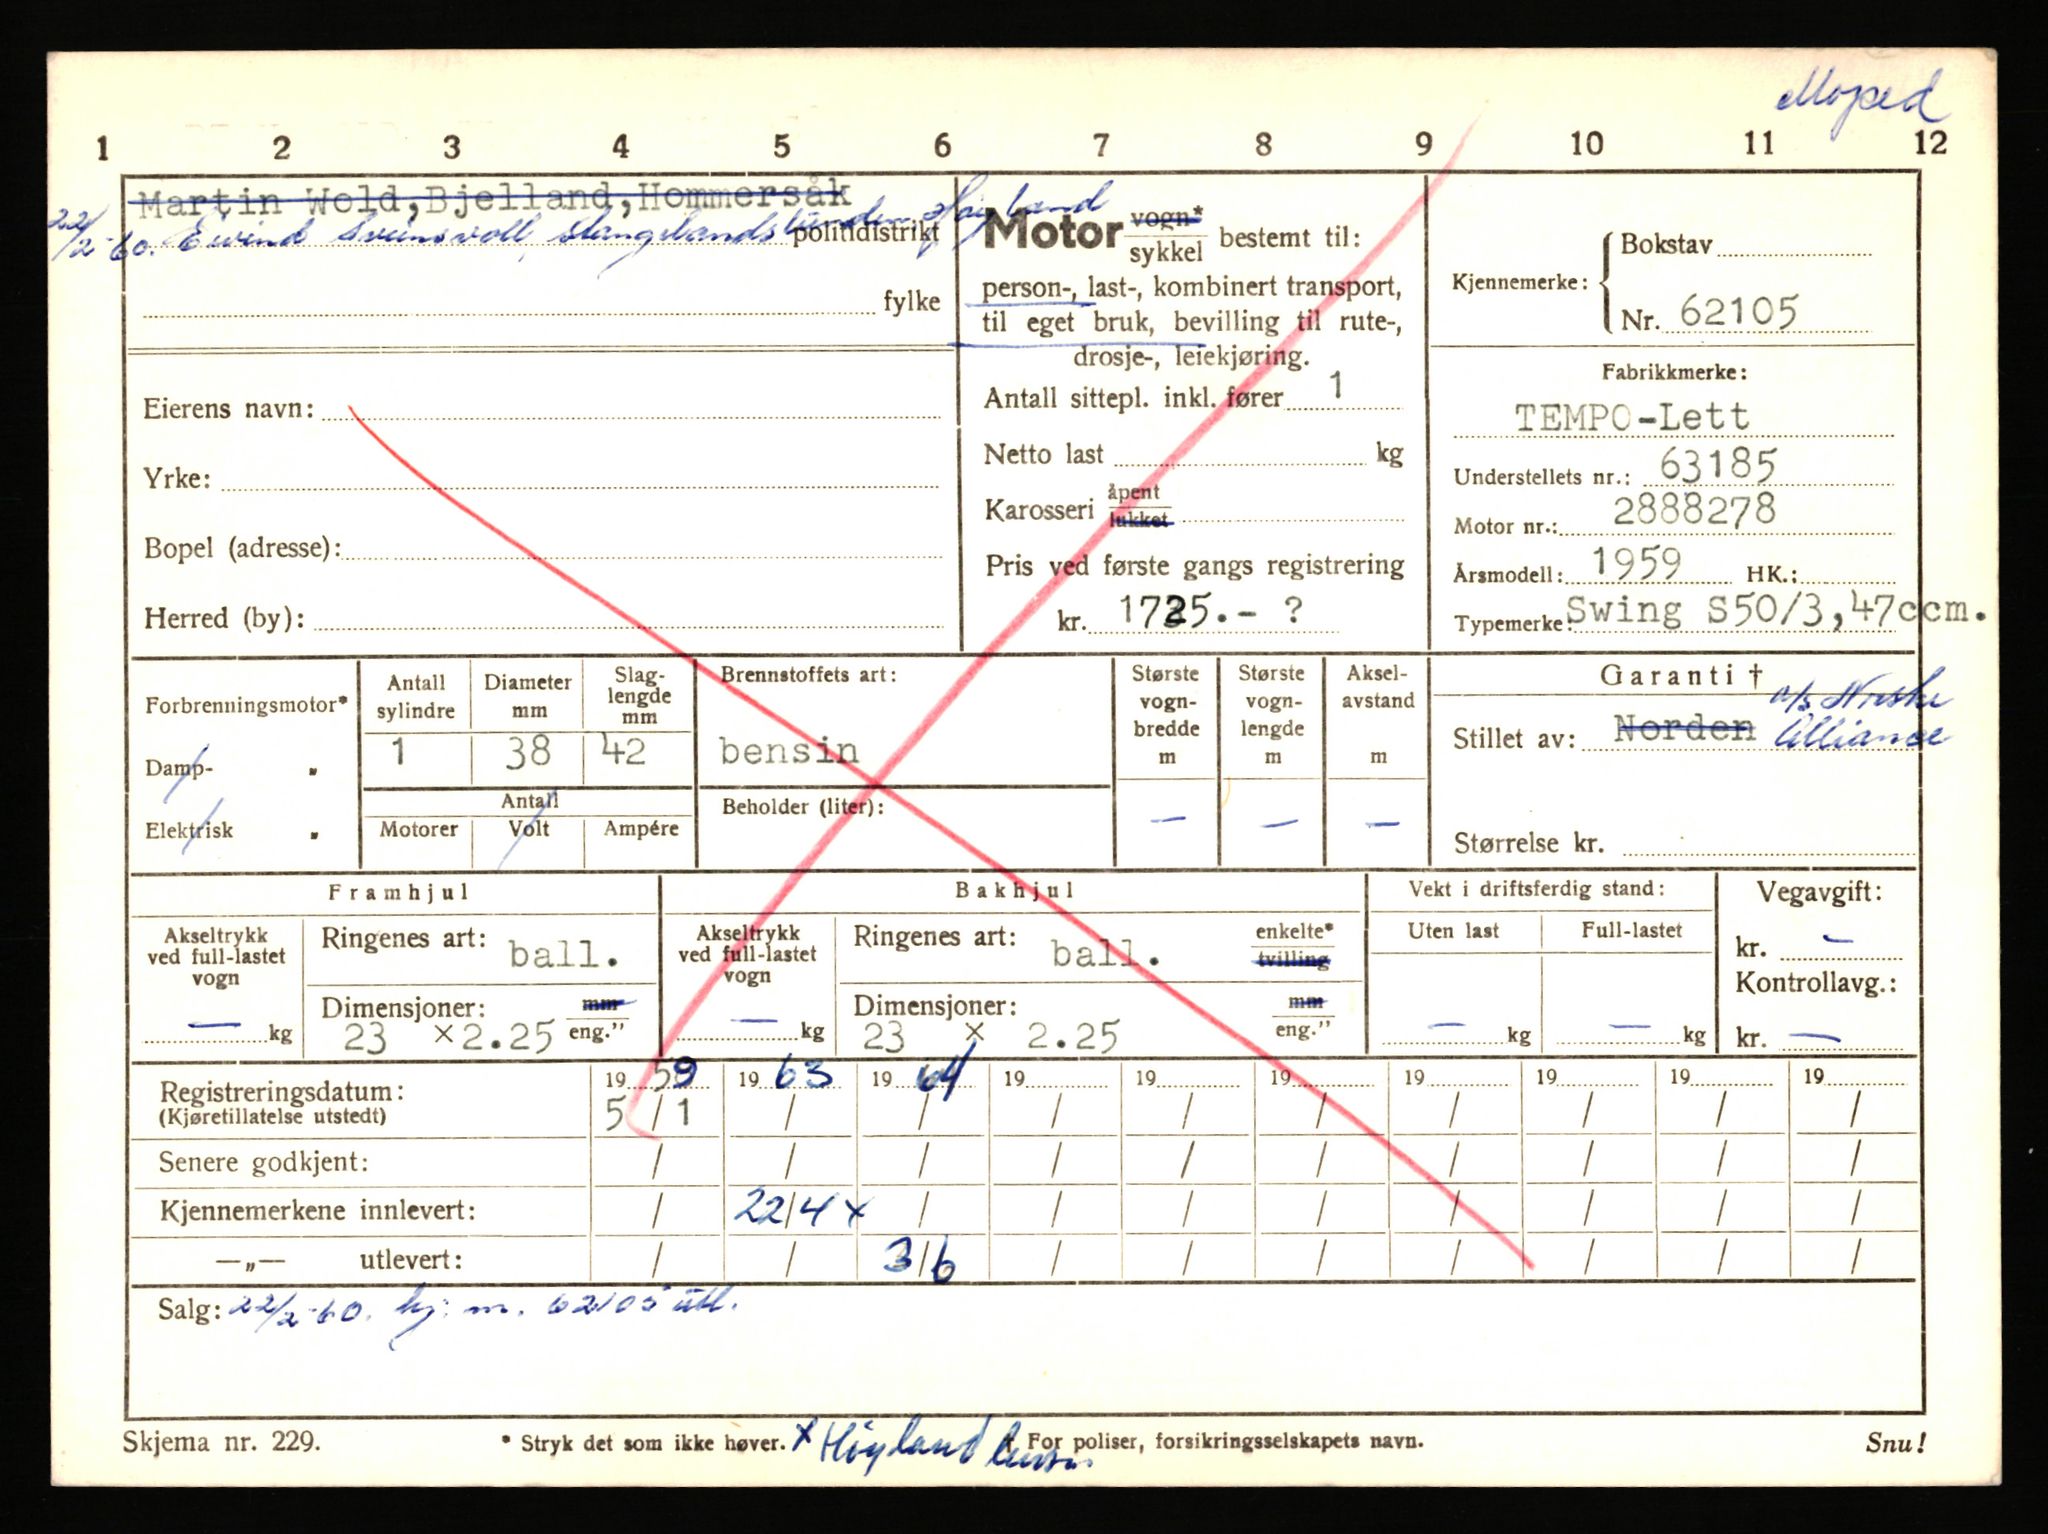 Moped
1 2 3 4 5 6 7 8 9 10 11 12
Martin Wold, Bjelland, Hommersåk
22/2-60. Eivind Sveinsvoll, Stangelandslunden Høyland
politidistrikt
fylke
Eierens navn:
Yrke:
Bopel (adresse):
Herred (by):
Motor vogn* sykkel bestemt til:
person-, last-, kombinert transport,
til eget bruk, bevilling til rute-,
drosje-, leiekjøring.
Antall sittepl. inkl. fører 1
Netto last kg
Karosseri åpent lukket
Pris ved første gangs registrering
kr. 1725.- ?
Kjennemerke: Bokstav
Nr. 62105
Fabrikkmerke:
TEMPO-Lett
Understellets nr.: 63185
Motor nr.: 2888278
Årsmodell: 1959 HK.:
Typemerke: Swing S50/3,47ccm.
Forbrenningsmotor*
Damp- "
Elektrisk "
Antall sylindre
Diameter mm
Slag-lengde mm
1 38 42
Antall
Motorer Volt Ampére
Brennstoffets art:
bensin
Beholder (liter):
Største vogn-bredde m
–
Største vogn-lengde m
–
Aksel-avstand m
–
Garanti †
Stillet av: Norden a/s Norske Alliance
Størrelse kr.
Framhjul
Akseltrykk ved full-lastet vogn
– kg
Ringenes art: ball.
Dimensjoner: mm
23 × 2.25 eng."
Bakhjul
Akseltrykk ved full-lastet vogn
– kg
Ringenes art: ball. enkelte* tvilling
Dimensjoner: mm
23 × 2.25 eng."
Vekt i driftsferdig stand:
Uten last Full-lastet
– kg – kg
Vegavgift:
kr. –
Kontrollavg.:
kr. –
Registreringsdatum: 19 59 19 63 19 64 19 19 19 19 19 19 19
(Kjøretillatelse utstedt) 5/1 / / / / / / / / /
Senere godkjent: / / / / / / / / / /
Kjennemerkene innlevert: / 22/4 x / / / / / / / /
—„— utlevert: / / 3/6 / / / / / / /
Salg: 22/2-60. kj. m. 62105 utl.
Skjema nr. 229.
* Stryk det som ikke høver.
x Høyland
† For poliser, forsikringsselskapets navn.
Snu!